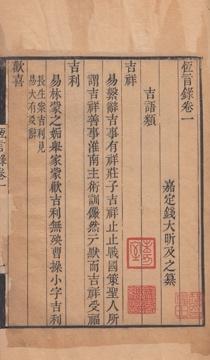 恆言錄卷一
嘉定錢大昕及之纂
吉語類
吉祥
易繫辭吉事有祥莊子吉祥止止戰國策聖人所
謂吉祥善事淮南主術訓儼然玄默而吉祥受福
吉利
易林蒙之姤舉家蒙歡吉利無殃曹操小字吉利
長生案吉利見
易大有爻辭
歡喜
恆言錄卷一